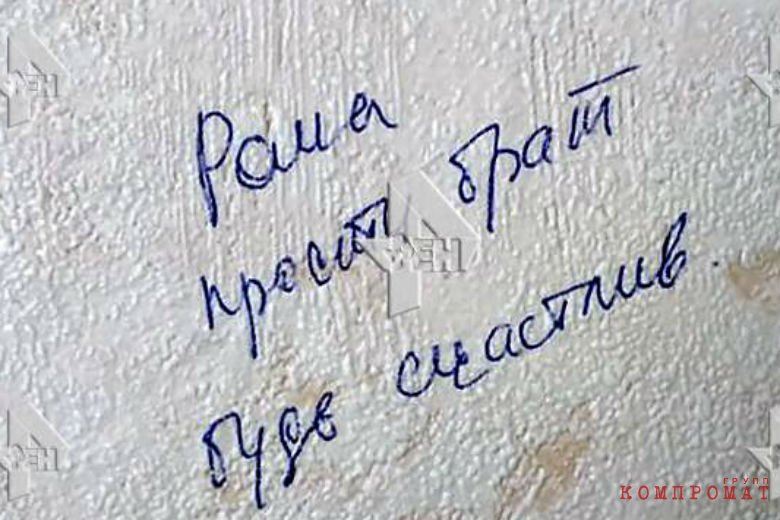 Рама
прости брат
будь счастлив.
РЕН
РЕН
РЕН
РЕН
РЕН
ГРУПП
КОМПРОМАТ